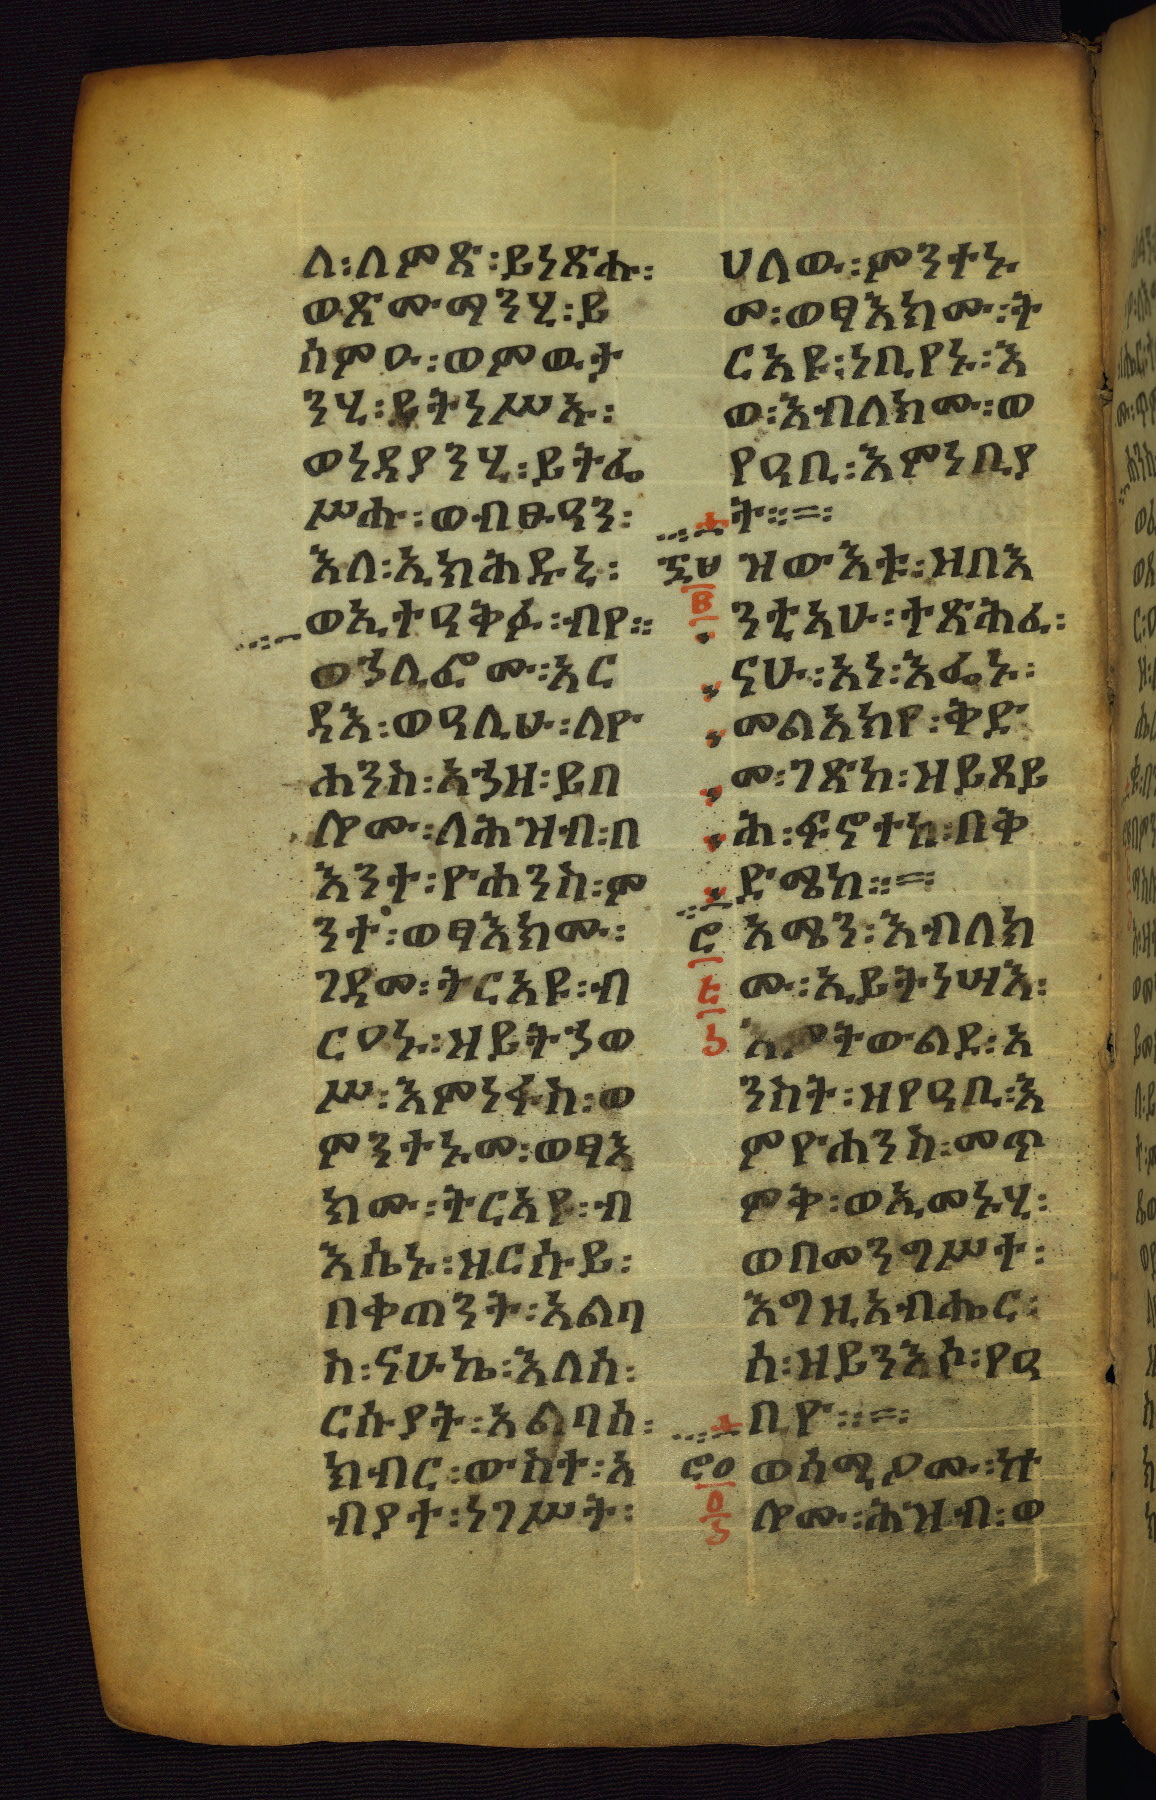 ሉ፡ለምጽ፡ይነጽሑ፡
ወጽሙማንሂ፡ይ
ሰምዑ፡ወምዉታ
ንሂ፡ይትነሥኡ፡
ወነዳያንሂ፡ይትፌ
ሥሑ፡ወብፁዓን፡
እለ፡ኢክሕዱኒ፡
ወኢተዓቅፉ፡ብየ።
ወኀሊፎሙ፡አር
ዳእ፡ወዓሊሁ፡ለዮ
ሐንስ፡አኀዘ፡ይበ
ሎሙ፡ለሕዝብ፡በ
እንተ፡ዮሐንስ፡ም
ንተ፡ወፃእክሙ፡
ገዳመ፡ትርአዩ፡ብ
ርዐኑ፡ዘይትኀወ
ሥ፡እምነፋስ፡ወ
ምንተኑመ፡ወፃእ
ክሙ፡ትርአዩ፡ብ
እሴኑ፡ዝርሱይ፡
በቀጠንት፡አልባ
ስ፡ናሁኬ፡እለሰ፡
ርሱያት፡አልባሰ፡
ክብር፡ውስተ፡አ
ብያተ፡ነገሥት፡
ሀለው፡ምንተኑ
መ፡ወፃእክሙ፡ት
ርአዩ፡ነቢየኑ፡እ
ወ፡እብለክሙ፡ወ
የዓቢ፡እምነቢያ
ት።=፡
፷ሀ ዝውእቱ፡ዘበእ
ንቲአሁ፡ተጽሕፈ፡
ናሁ፡አነ፡እፌኑ፡
መልአክየ፡ቅድ
መ፡ገጽከ፡ዘይጸይ
ሕ፡ፍኖተከ፡በቅ
ድሜከ።=፡
አሜን፡እብለክ
ሙ፡ኢይትነሣእ፡
እምትውልደ፡አ
ንስት፡ዘየዓቢ፡እ
ምዮሐንስ፡መጥ
ምቅ፡ወኢመኑሂ፡
ወበመንግሥተ፡
እግዚአብሔር፡
ሰ፡ዘይንእሶ፡የዓ
ቢዮ።=፡
ወሰሚዖሙ፡ኵ
ሎሙ፡ሕዝብ፡ወ